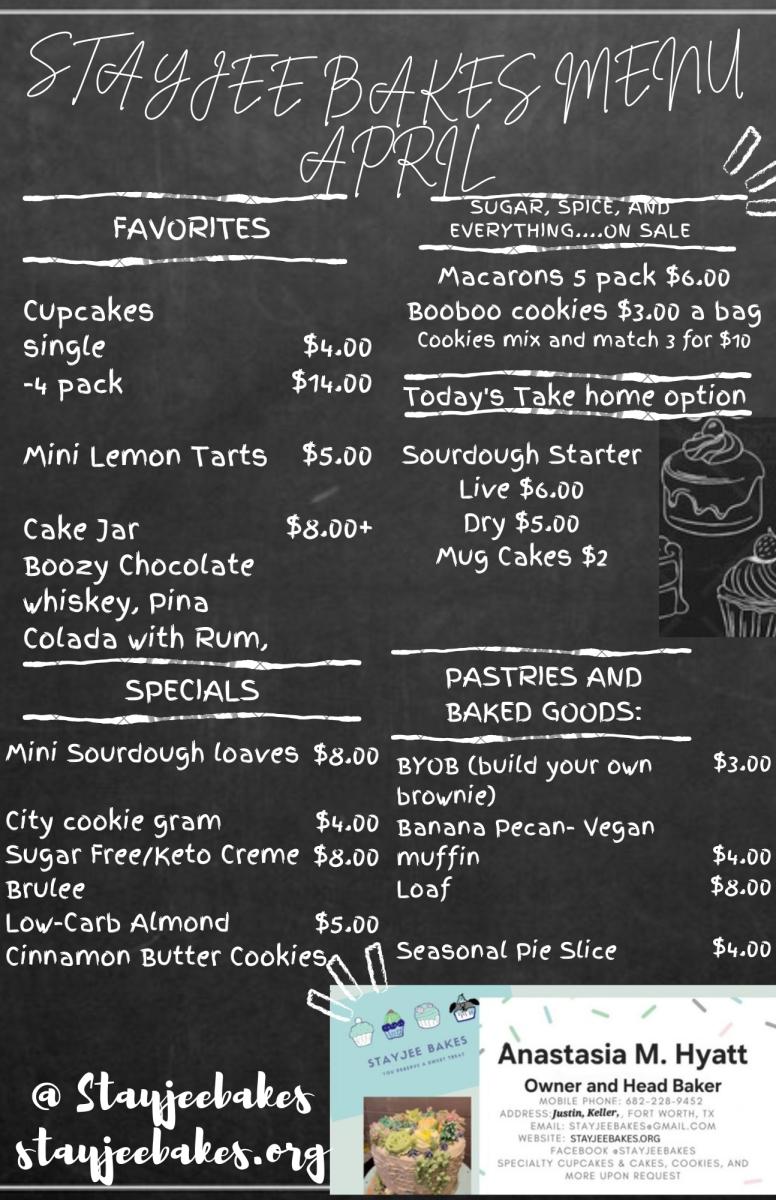 STAYJEE BAKES MENU
APRIL
FAVORITES
Cupcakes
single $4.00
-4 pack $14.00
Mini Lemon Tarts $5.00
Cake Jar $8.00+
Boozy Chocolate
whiskey, Pina
Colada with Rum,
SUGAR, SPICE, AND
EVERYTHING....ON SALE
Macarons 5 pack $6.00
Booboo cookies $3.00 a bag
Cookies mix and match 3 for $10
Today's Take home option
Sourdough Starter
Live $6.00
Dry $5.00
Mug Cakes $2
SPECIALS
Mini Sourdough loaves $8.00
City cookie gram $4.00
Sugar Free/Keto Creme $8.00
Brulee
Low-Carb Almond $5.00
Cinnamon Butter Cookies
PASTRIES AND
BAKED GOODS:
BYOB (build your own $3.00
brownie)
Banana Pecan- Vegan
muffin $4.00
Loaf $8.00
Seasonal Pie Slice $4.00
@ Stayjeebakes
stayjeebakes.org
STAYJEE BAKES
YOU DESERVE A SWEET TREAT
Anastasia M. Hyatt
Owner and Head Baker
MOBILE PHONE: 682-228-9452
ADDRESS:Justin, Keller,, FORT WORTH, TX
EMAIL: STAYJEEBAKES@GMAIL.COM
WEBSITE: STAYJEEBAKES.ORG
FACEBOOK @STAYJEEBAKES
SPECIALTY CUPCAKES & CAKES, COOKIES, AND
MORE UPON REQUEST